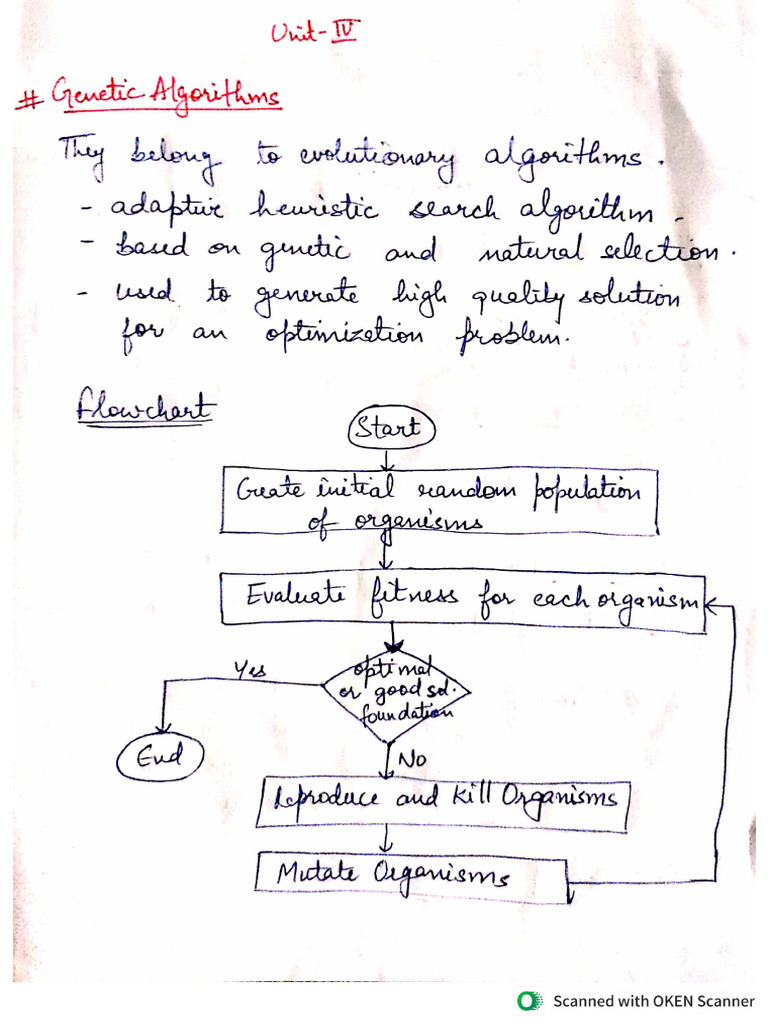 Unit-IV
# Genetic Algorithms
They belong to evolutionary algorithms.
- adaptive heuristic search algorithm.
- based on genetic and natural selection.
- used to generate high quality solution
for an optimization problem.
Flowchart
Start
Create initial random population
of organisms
Evaluate fitness for each organism
optimal
or good sol.
foundation
Yes
End
No
Reproduce and Kill Organisms
Mutate Organisms
Scanned with OKEN Scanner